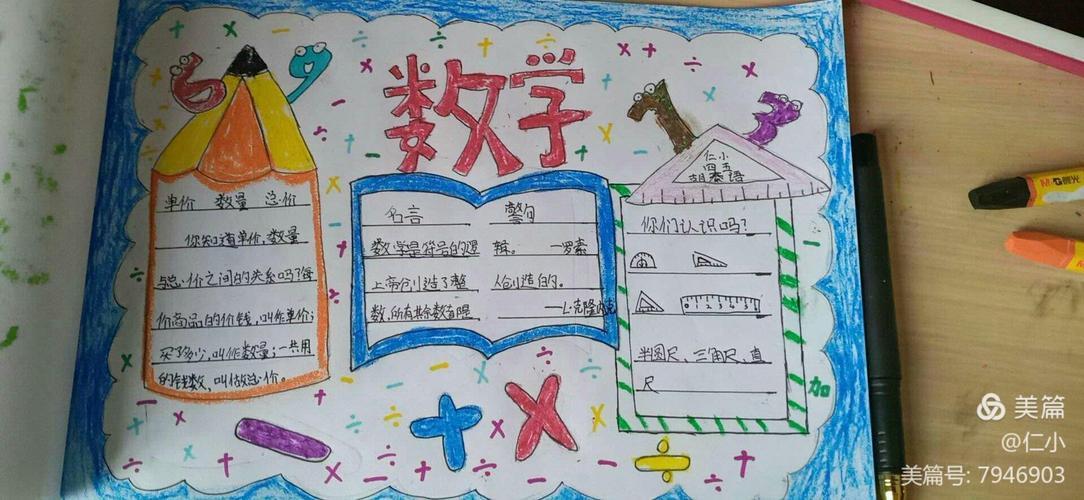 数学
单价 数量 总价
你知道单价,数量
与总价之间的关系吗?每
价商品的价钱,叫作单价;
买了多少,叫作数量;一共用
的钱数,叫做总价。
名言 警句
数学是符号的逻辑。 —罗素
上帝创造了整
数,所有其余数皆
人创造的。
——L·克隆内克
仁小
四五
胡泰语
你们认识吗?
0 1 2 3 4 5
半圆尺、三角尺、直
尺
加
晨光
美篇
@仁小
美篇号: 7946903